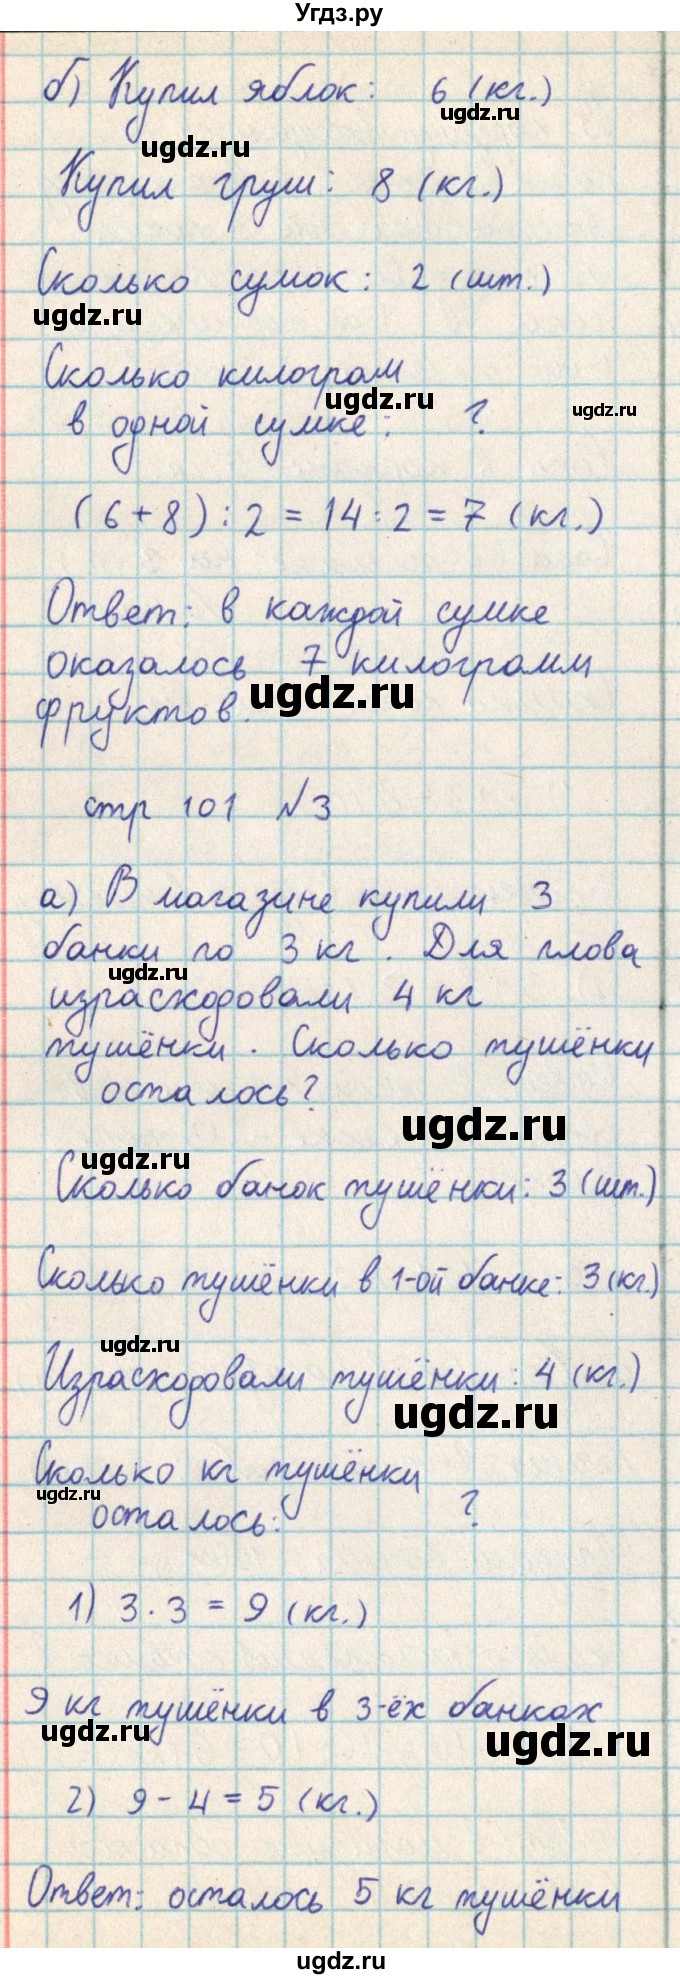 Угдз.ру
б) Купил яблок: 6 (кг.)
ugdz.ru
ugdz.ru
Купил груш: 8 (кг.)
Сколько сумок: 2 (шт.)
ugdz.ru
Сколько килограм
ugdz.ru
ugdz.ru
в одной сумке: ?
(6+8):2=14:2=7 (кг.)
Ответ: в каждой сумке
оказалось 7 килограмм
ugdz.ru
фруктов.
стр 101 №3
а) В магазине купили 3
банки по 3 кг. Для плова
ugdz.ru
израсходовали 4 кг
тушёнки. Сколько тушёнки
осталось?
ugdz.ru
ugdz.ru
Сколько банок тушёнки: 3 (шт.)
Сколько тушёнки в 1-ой банке: 3 (кг.)
ugdz.ru
Израсходовали тушёнки: 4 (кг.)
ugdz.ru
Сколько кг тушёнки
ugdz.ru
осталось: ?
1) 3·3=9 (кг.)
9 кг тушёнки в 3-ёх банках
ugdz.ru
ugdz.ru
2) 9-4=5 (кг.)
Ответ: осталось 5 кг тушёнки
ugdz.ru